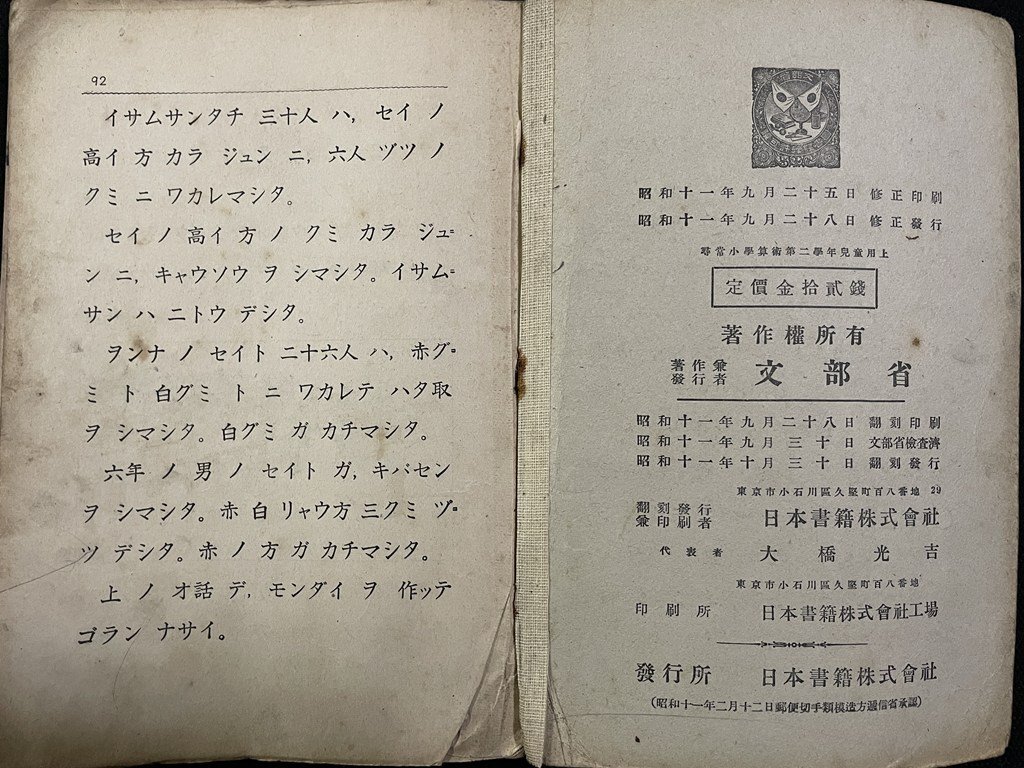 92
イサムサンタチ 三十人 ハ, セイ ノ
高イ 方 カラ ジュン ニ, 六人 ヅツ ノ
クミ ニ ワカレマシタ。
セイ ノ 高イ 方 ノ クミ カラ ジュ゠
ン ニ, キャウソウ ヲ シマシタ。イサム゠
サン ハ ニトウ デシタ。
ヲンナ ノ セイト 二十六人 ハ, 赤グ゠
ミ ト 白グミ ト ニ ワカレテ ハタ取
ヲ シマシタ。白グミ ガ カチマシタ。
六年 ノ 男 ノ セイト ガ, キバセン
ヲ シマシタ。赤 白 リャウ方 三クミ ヅ゠
ツ デシタ。赤 ノ 方 ガ カチマシタ。
上 ノ オ話 デ, モンダイ ヲ 作ッテ
ゴラン ナサイ。
昭和十一年九月二十五日 修正印刷
昭和十一年九月二十八日 修正發行
尋常小學算術第二學年兒童用上
定價金拾貳錢
著作權所有
著作兼
發行者 文部省
昭和十一年九月二十八日 翻刻印刷
昭和十一年九月三十日 文部省檢査濟
昭和十一年十月三十日 翻刻發行
東京市小石川區久堅町百八番地 29
翻刻發行
兼印刷者 日本書籍株式會社
代表者 大橋光吉
東京市小石川區久堅町百八番地
印刷所 日本書籍株式會社工場
發行所 日本書籍株式會社
(昭和十一年二月十二日郵便切手類模造方遞信省承認)